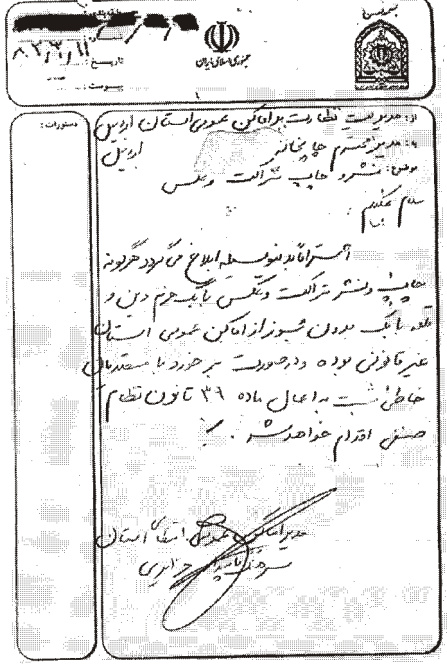 جمهوری اسلامی ایران
شماره:
تاریخ: ۸۳/۳/۱۱
پیوست:
دستورات:
از: مدیریت نظارت بر اماکن عمومی استان اردبیل
به: مدیر محترم چاپخانه اردبیل
موضوع: نشر و چاپ تراکت و عکس
سلام علیکم
احتراماً بدینوسیله ابلاغ می گردد هرگونه
چاپ و نشر تراکت و عکس بابک خرم دین و
قلعه بابک بدون مجوز از اماکن عمومی استان
غیر قانونی بوده و در صورت برخورد با متصدیان
خاطی نسبت به اعمال ماده ۳۹ قانون نظام
صنفی اقدام خواهد شد.
مدیر اماکن عمومی استان
سرهنگ